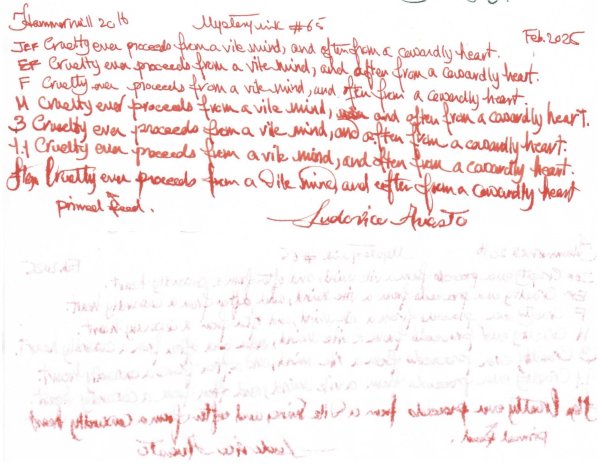 Hammermill 20 lb Mystery ink #65 Feb. 2025
JEF Cruelty ever proceeds from a vile mind, and often from a cowardly heart.
EF Cruelty ever proceeds from a vile mind, and often from a cowardly heart.
F Cruelty ever proceeds from a vile mind, and often from a cowardly heart.
M Cruelty ever proceeds from a vile mind, and often from a cowardly heart.
B Cruelty ever proceeds from a vile mind, and often from a cowardly heart.
1.1 Cruelty ever proceeds from a vile mind, and often from a cowardly heart.
Cruelty ever proceeds from a vile mind, and often from a cowardly heart
primed feed.
Ludovico Ariosto